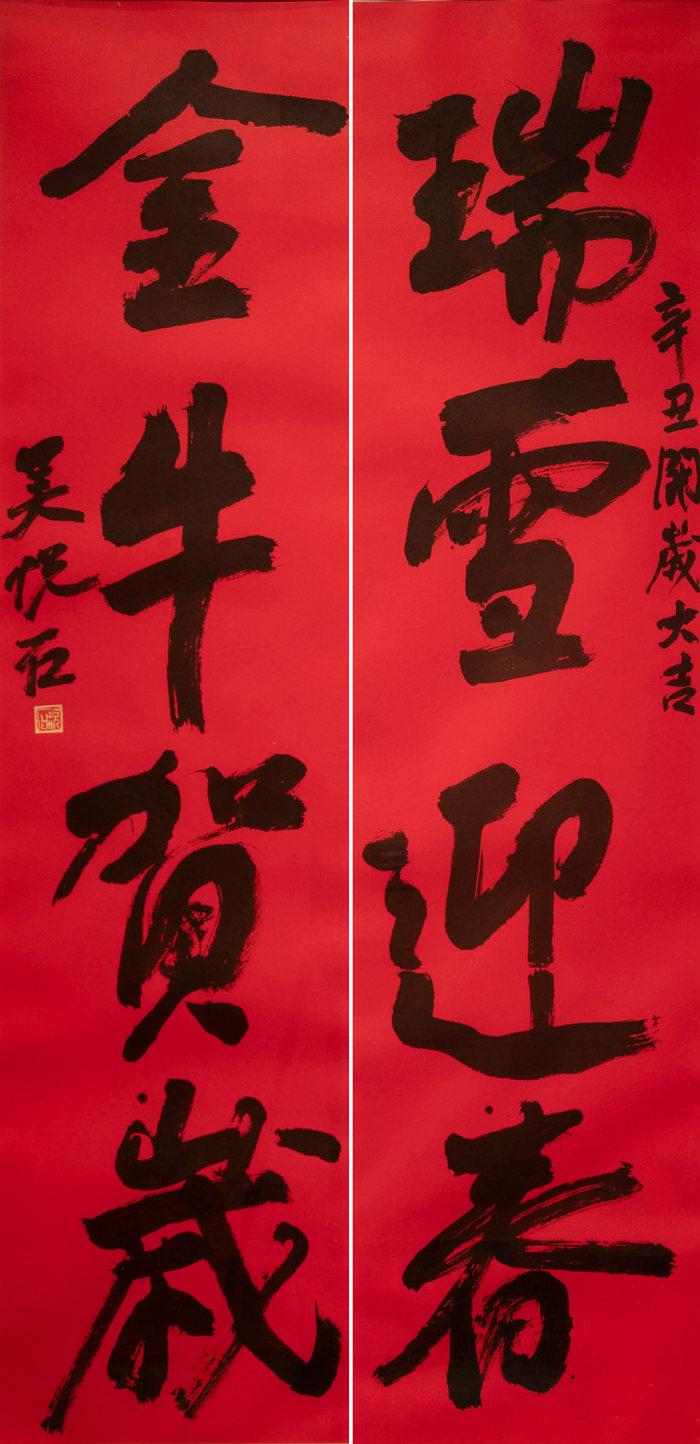 辛丑開歲大吉
瑞雪迎春
金牛賀歲
吴悦石